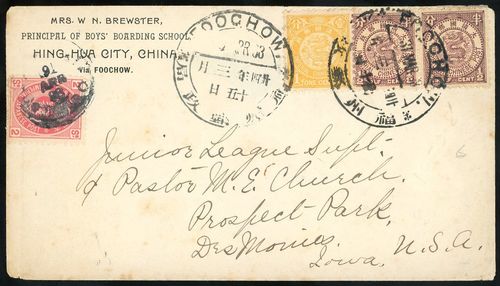 MRS. W. N. BREWSTER,
PRINCIPAL OF BOYS' BOARDING SCHOOL
HING-HUA CITY, CHINA
Via FOOCHOW.
FOOCHOW
FOOCHOW
ONE CENT
CENT
Junior League Supt.
& Pastor M. E. Church.
Prospect Park,
DesMoines,
Iowa, U.S.A.